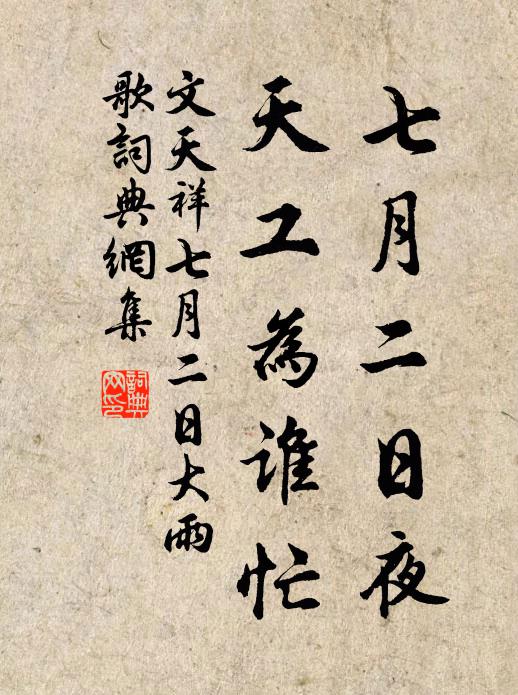 七月二日夜
天工為誰忙
文天祥七月二日大雨
歌詞典網集
詞典
网印